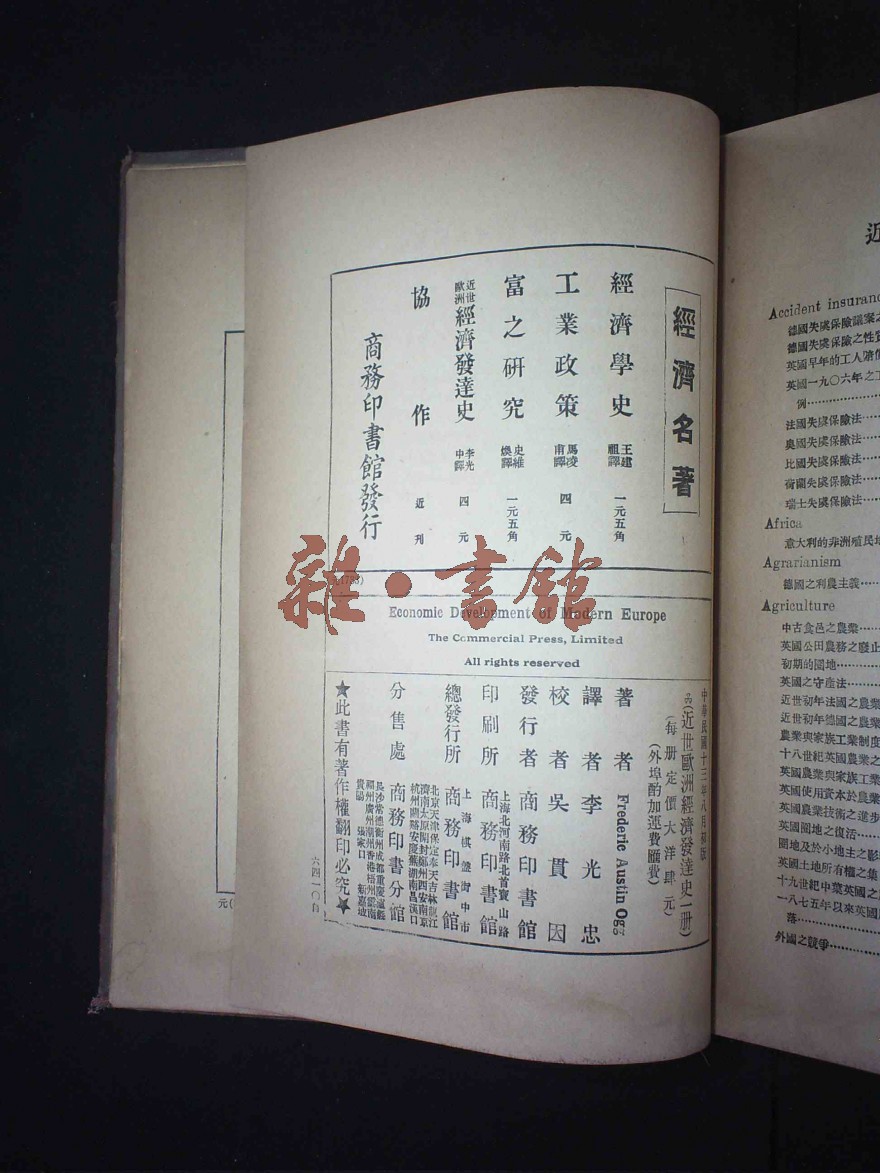 經濟名著
經濟學史 王建祖譯 一元五角
工業政策 馬凌甫譯 四元
富之研究 史維煥譯 一元五角
近世歐洲經濟發達史 李光忠譯 四元
協作 近刊
商務印書館發行
雜·書館
Economic Development of Modern Europe
The Commercial Press, Limited
All rights reserved
中華民國十三年八月初版
(近世歐洲經濟發達史一册)
(每册定價大洋肆元)
(外埠酌加運費匯費)
著者 Frederic Austin Ogg
譯者 李光忠
校者 吳貫因
發行者 商務印書館
印刷所 上海北河南路北首寶山路 商務印書館
總發行所 上海棋盤街中市 商務印書館
分售處 北京天津保定奉天吉林龍江
濟南太原開封鄭州西安南京
杭州蘭谿安慶蕪湖南昌漢口
商務印書分館
長沙常德衡州成都重慶瀘縣
福州廣州潮州香港梧州雲南
貴陽 張家口 新嘉坡
★此書有著作權翻印必究★
六四一〇自
近
Accident insuranc
德國失虞保險議案之
德國失虞保險之性質
英國早年的工人賠償
英國一九〇六年之工
例
法國失虞保險法
奧國失虞保險法
比國失虞保險法
荷蘭失虞保險法
瑞士失虞保險法
Africa
意大利的非洲殖民地
Agrarianism
德國之利農主義
Agriculture
中古食邑之農業
英國公田農務之廢止
初期的圈地
英國之守產法
近世初年法國之農業
近世初年德國之農業
農業與家族工業制度
十八世紀英國農業之
英國農業與家族工業
英國使用資本於農業
英國農業技術之進步
英國圈地之復活
圈地及於小地主之影
英國土地所有權之集
十九世紀中葉英國之
一八七五年以來英國
落
外國之競爭
元(